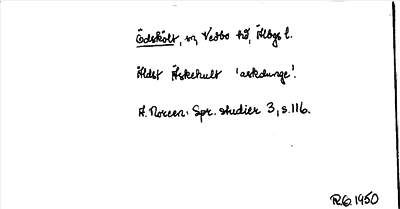 Ödskölt, sn, Vedbo hd, Älvsbgs l.
Äldst Äskehult 'askdunge'.
A. Noreen: Spr. studier 3, s. 116.
R.G. 1950